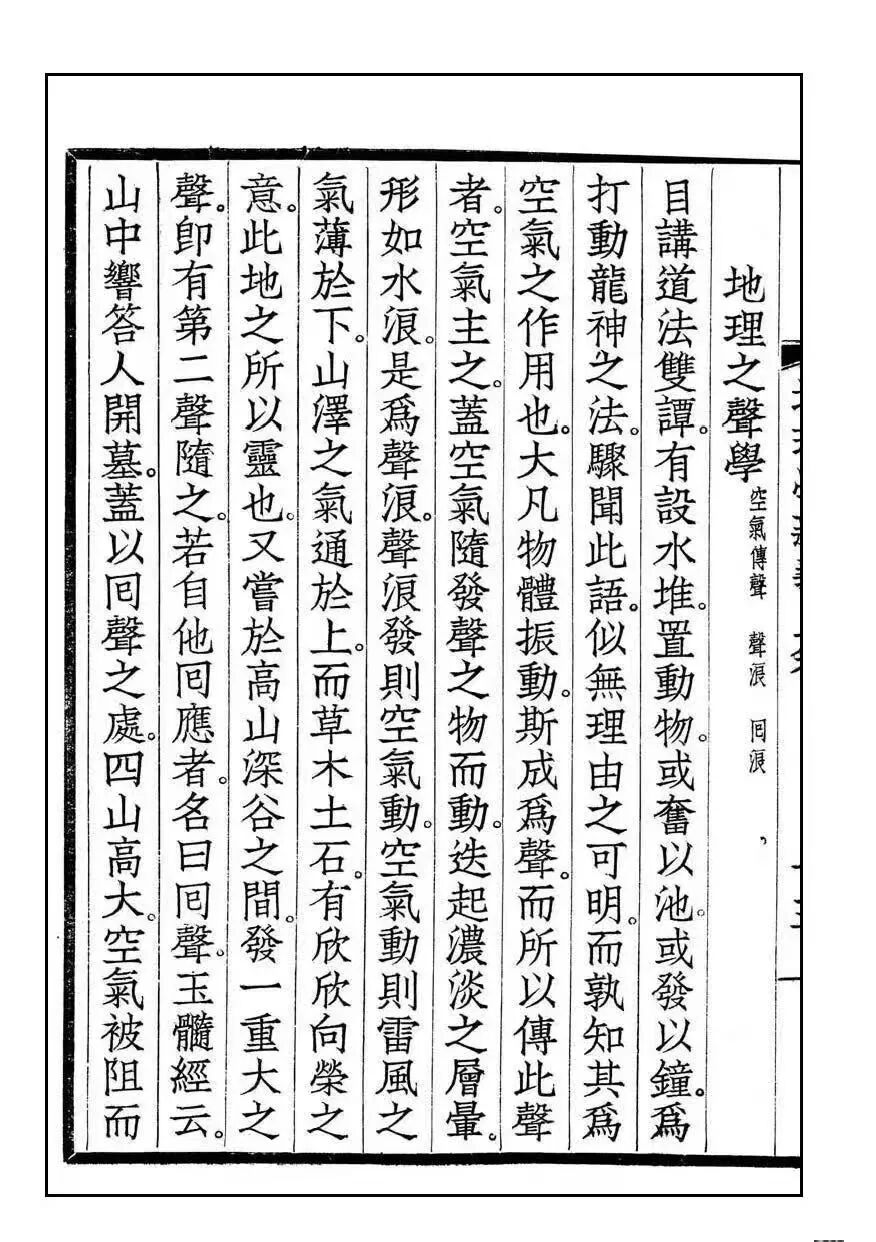 地理之聲學 空氣傳聲 聲浪 囘浪
目講道法雙譚。有設水堆。置動物。或奮以池。或發以鐘。爲
打動龍神之法。驟聞此語。似無理由之可明。而孰知其爲
空氣之作用也。大凡物體振動。斯成爲聲。而所以傳此聲
者。空氣主之。蓋空氣隨發聲之物而動。迭起濃淡之層暈。
形如水浪。是爲聲浪。聲浪發則空氣動。空氣動則雷風之
氣薄於下。山澤之氣通於上。而草木土石。有欣欣向榮之
意。此地之所以靈也。又嘗於高山深谷之間。發一重大之
聲。卽有第二聲隨之。若自他囘應者。名曰囘聲。玉髓經云。
山中響答人開墓。蓋以囘聲之處。四山高大。空氣被阻而